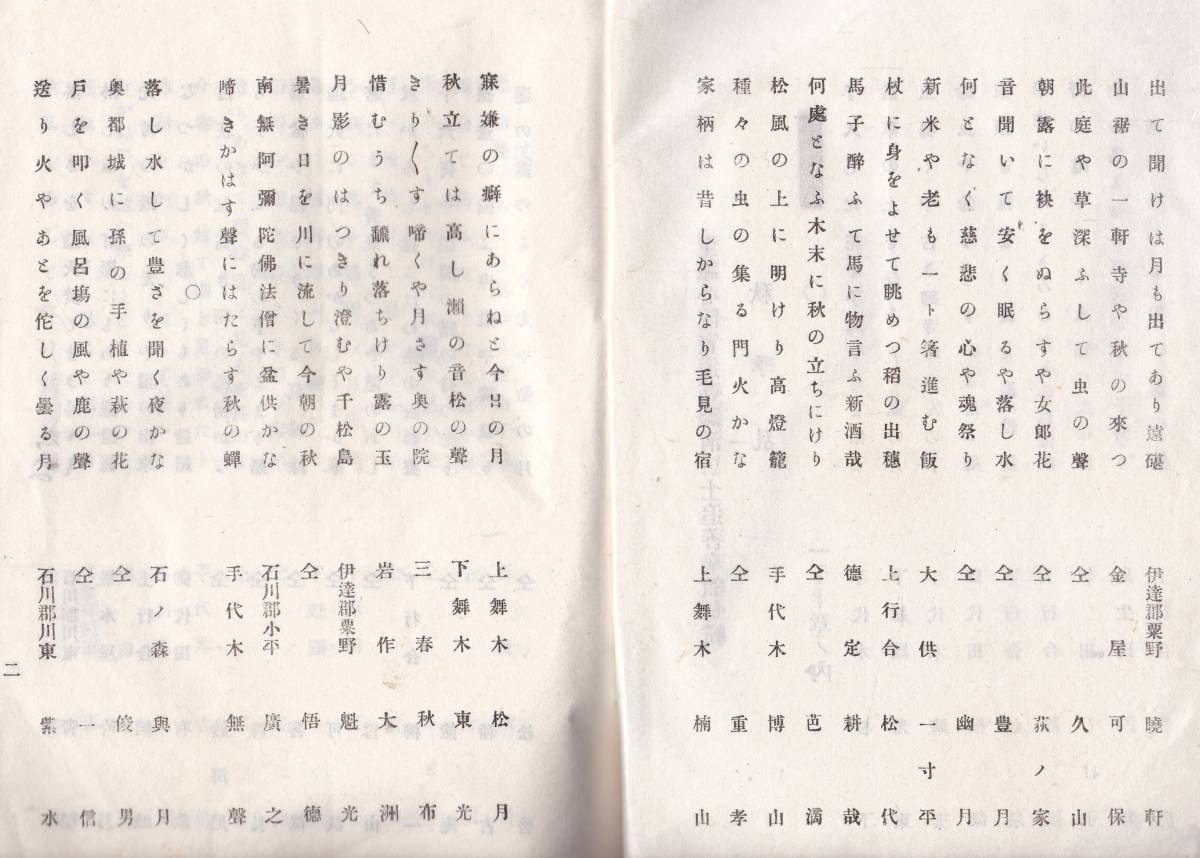 出て聞けは月も出てあり遠碪 伊達郡粟野 曉軒
山裾の一軒寺や秋の來つ 金屋 可保
此庭や草深ふして虫の聲 仝 久山
朝露に袂をぬらすや女郎花 仝 荻ノ家
音聞いて安く眠るや落し水 仝 豊月
何となく慈悲の心や魂祭り 仝 幽月
新米や老も一ト箸進む飯 大供 一寸平
杖に身をよせて眺めつ稲の出穗 上行合 松代
馬子醉ふて馬に物言ふ新酒哉 德定 耕哉
何處となふ木末に秋の立ちにけり 仝 芭滿
松風の上に明けり高燈籠 手代木 博山
種々の虫の集る門火かな 仝 重孝
家柄は昔しからなり毛見の宿 上舞木 楠山
寐嫌の癖にあらねと今日の月 上舞木 松月
秋立ては高し瀨の音松の聲 下舞木 東光
きり〱す啼くや月さす奥の院 三春 秋布
惜むうち飜れ落ちけり露の玉 岩作 大洲
月影のはつきり澄むや千松島 伊達郡粟野 魁光
暑き日を川に流して今朝の秋 仝 悟德
南無阿彌陀佛法僧に盆供かな 石川郡小平 廣之
啼きかはす聲にはたらす秋の蟬 手代木 無聲
〇
落し水して豊ざを聞く夜かな 石ノ森 與月
奥都城に孫の手植や萩の花 仝 俊男
戸を叩く風呂塲の風や鹿の聲 仝 一信
送り火やあとを佗しく曇る月 石川郡川東 紫水
二